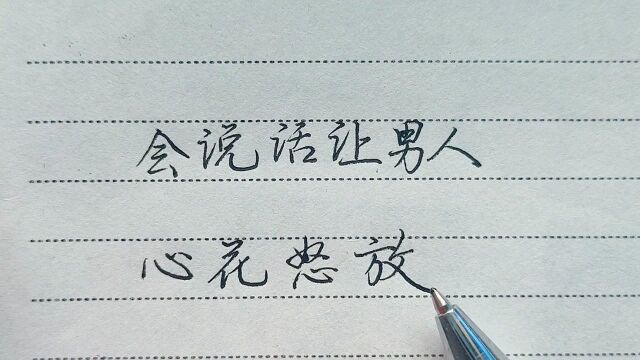 会说话让男人
心花怒放